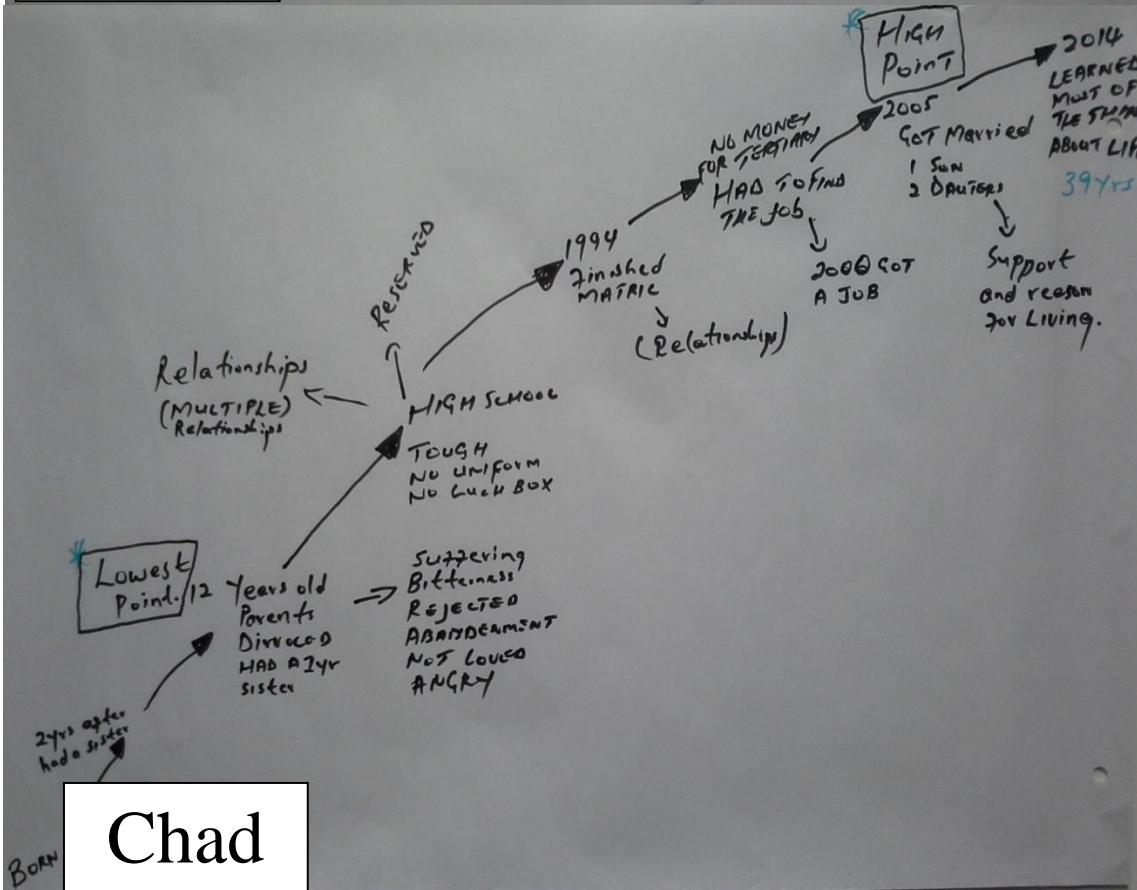 BORN
Chad
2yrs after
had a sister
Lowest
Point.
12 Years old
Parents
Divroced
HAD A 2yr
sister
Suffering
Bitterness
REJECTED
ABANDERMENT
NOT LOVED
ANGRY
HIGH SCHOOL
TOUGH
NO UNIFORM
NO LUCH BOX
Relationships
(MULTIPLE)
Relationships
RESERVED
1994
Finished
MATRIC
(Relationships)
NO MONEY
FOR TERTIARY
HAD TO FIND
THE JOB
GOT
A JOB
HIGH
POINT
2005
GOT Married
1 SON
2 DAUTERS
Support
and reason
for Living.
2014
LEARNED
MOST OF
THE THIN
ABOUT LIF
39yrs